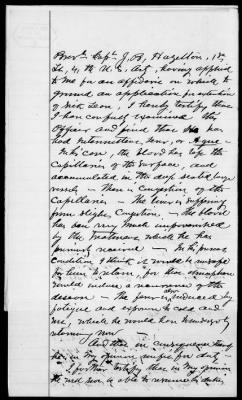 Brevt. Capt. J. B. Hazelton, 1st
Lt. 4th U.S. Art., having applied
to me for an affidavit on which to
ground an application for extention
of Sick Leave, I hereby certify that
I have carefully examined this
Officer and find that he has
had Intermittent Fever, or Ague -
In his case, the blood has left the
Capillaries of the surface, and
accumulated in the deep seated large
vessels - There is congestion of the
Capillaries - The liver is suffering
from slight Congestion. - the blood
has been very much impoverished
by the treatment which he has
previously received - In his present
condition I think it would be unsafe
for him to return, for the atmosphere
would induce a recurrence of the
disease - The fever is also induced by
fatigue and exposure to cold and
wet, which he would have to undergo by
returning now -
And that in consequence thereof
he is, in my opinion unfit for duty -
I further certify that in my opinion
he will soon be able to resume his duties,